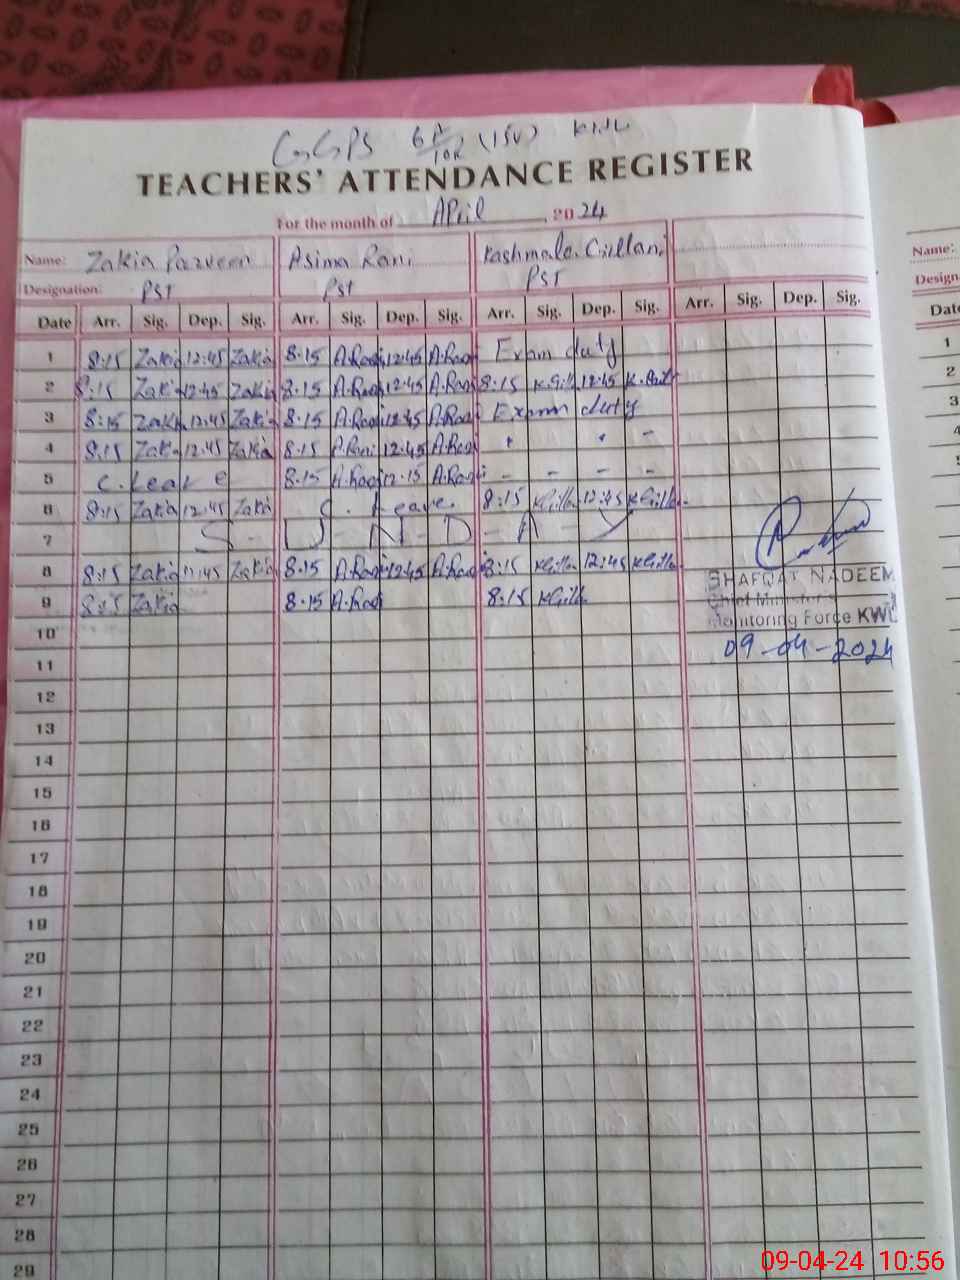 GGPS 6A/10R (15V) KWL
TEACHERS' ATTENDANCE REGISTER
For the month of April, 2024
Name: Zakia Parveen Asima Rani Kashmala Gillani Name:
Designation: PST PST PST Design
Date Arr. Sig. Dep. Sig. Arr. Sig. Dep. Sig. Arr. Sig. Dep. Sig. Arr. Sig. Dep. Sig. Date
1 8:15 Zakia 12:45 Zakia 8:15 A.Rani 12:45 A.Rani Exam duty 1
2 8:15 Zakia 12:45 Zakia 8:15 A.Rani 12:45 A.Rani 8:15 K.Gilla 12:45 K.Gilla 2
3 8:15 Zakia 12:45 Zakia 8:15 A.Rani 12:45 A.Rani Exam duty 3
4 8:15 Zakia 12:45 Zakia 8:15 A.Rani 12:45 A.Rani 4
5 C. Leave 8:15 A.Rani 12:15 A.Rani - - - - 5
6 8:15 Zakia 12:45 Zakia C. Leave 8:15 KGilla 12:45 KGilla
7 S - U - N - D - A - Y
8 8:15 Zakia 12:45 Zakia 8:15 A.Rani 12:45 A.Rani 8:15 KGilla 12:45 KGilla
SHAFQAT NADEEM
9 8:15 Zakia 8:15 A.Rani 8:15 KGilla
Chief Minister's
Monitoring Force KWL
10
09-04-2024
11
12
13
14
15
16
17
18
19
20
21
22
23
24
25
26
27
28
29
09-04-24 10:56